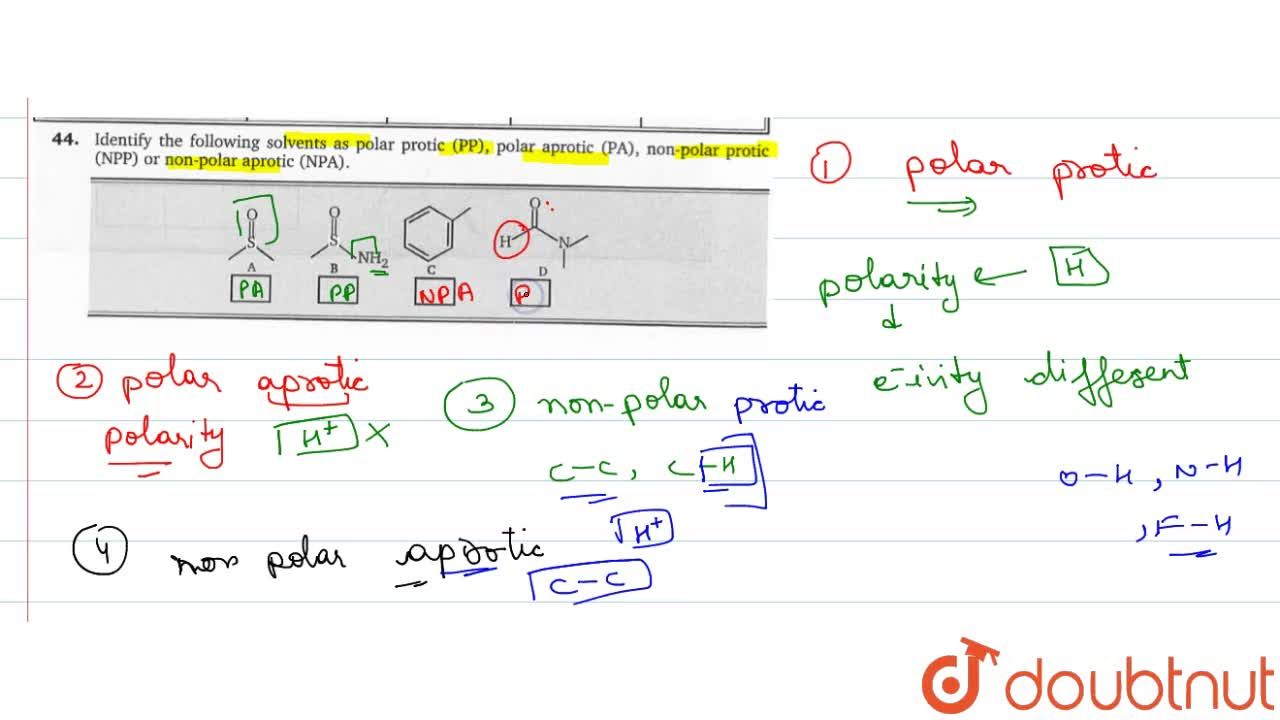 44. Identify the following solvents as polar protic (PP), polar aprotic (PA), non-polar protic
(NPP) or non-polar aprotic (NPA).
O O O
S S H N
NH2
A B C D
PA PP NPA P
① polar protic
polarity ← H
e-ivity different
O-H, N-H
, F-H
② polar aprotic
polarity H+ X
③ non-polar protic
C-C, C-H
H+
④ non polar aprotic
C-C
doubtnut